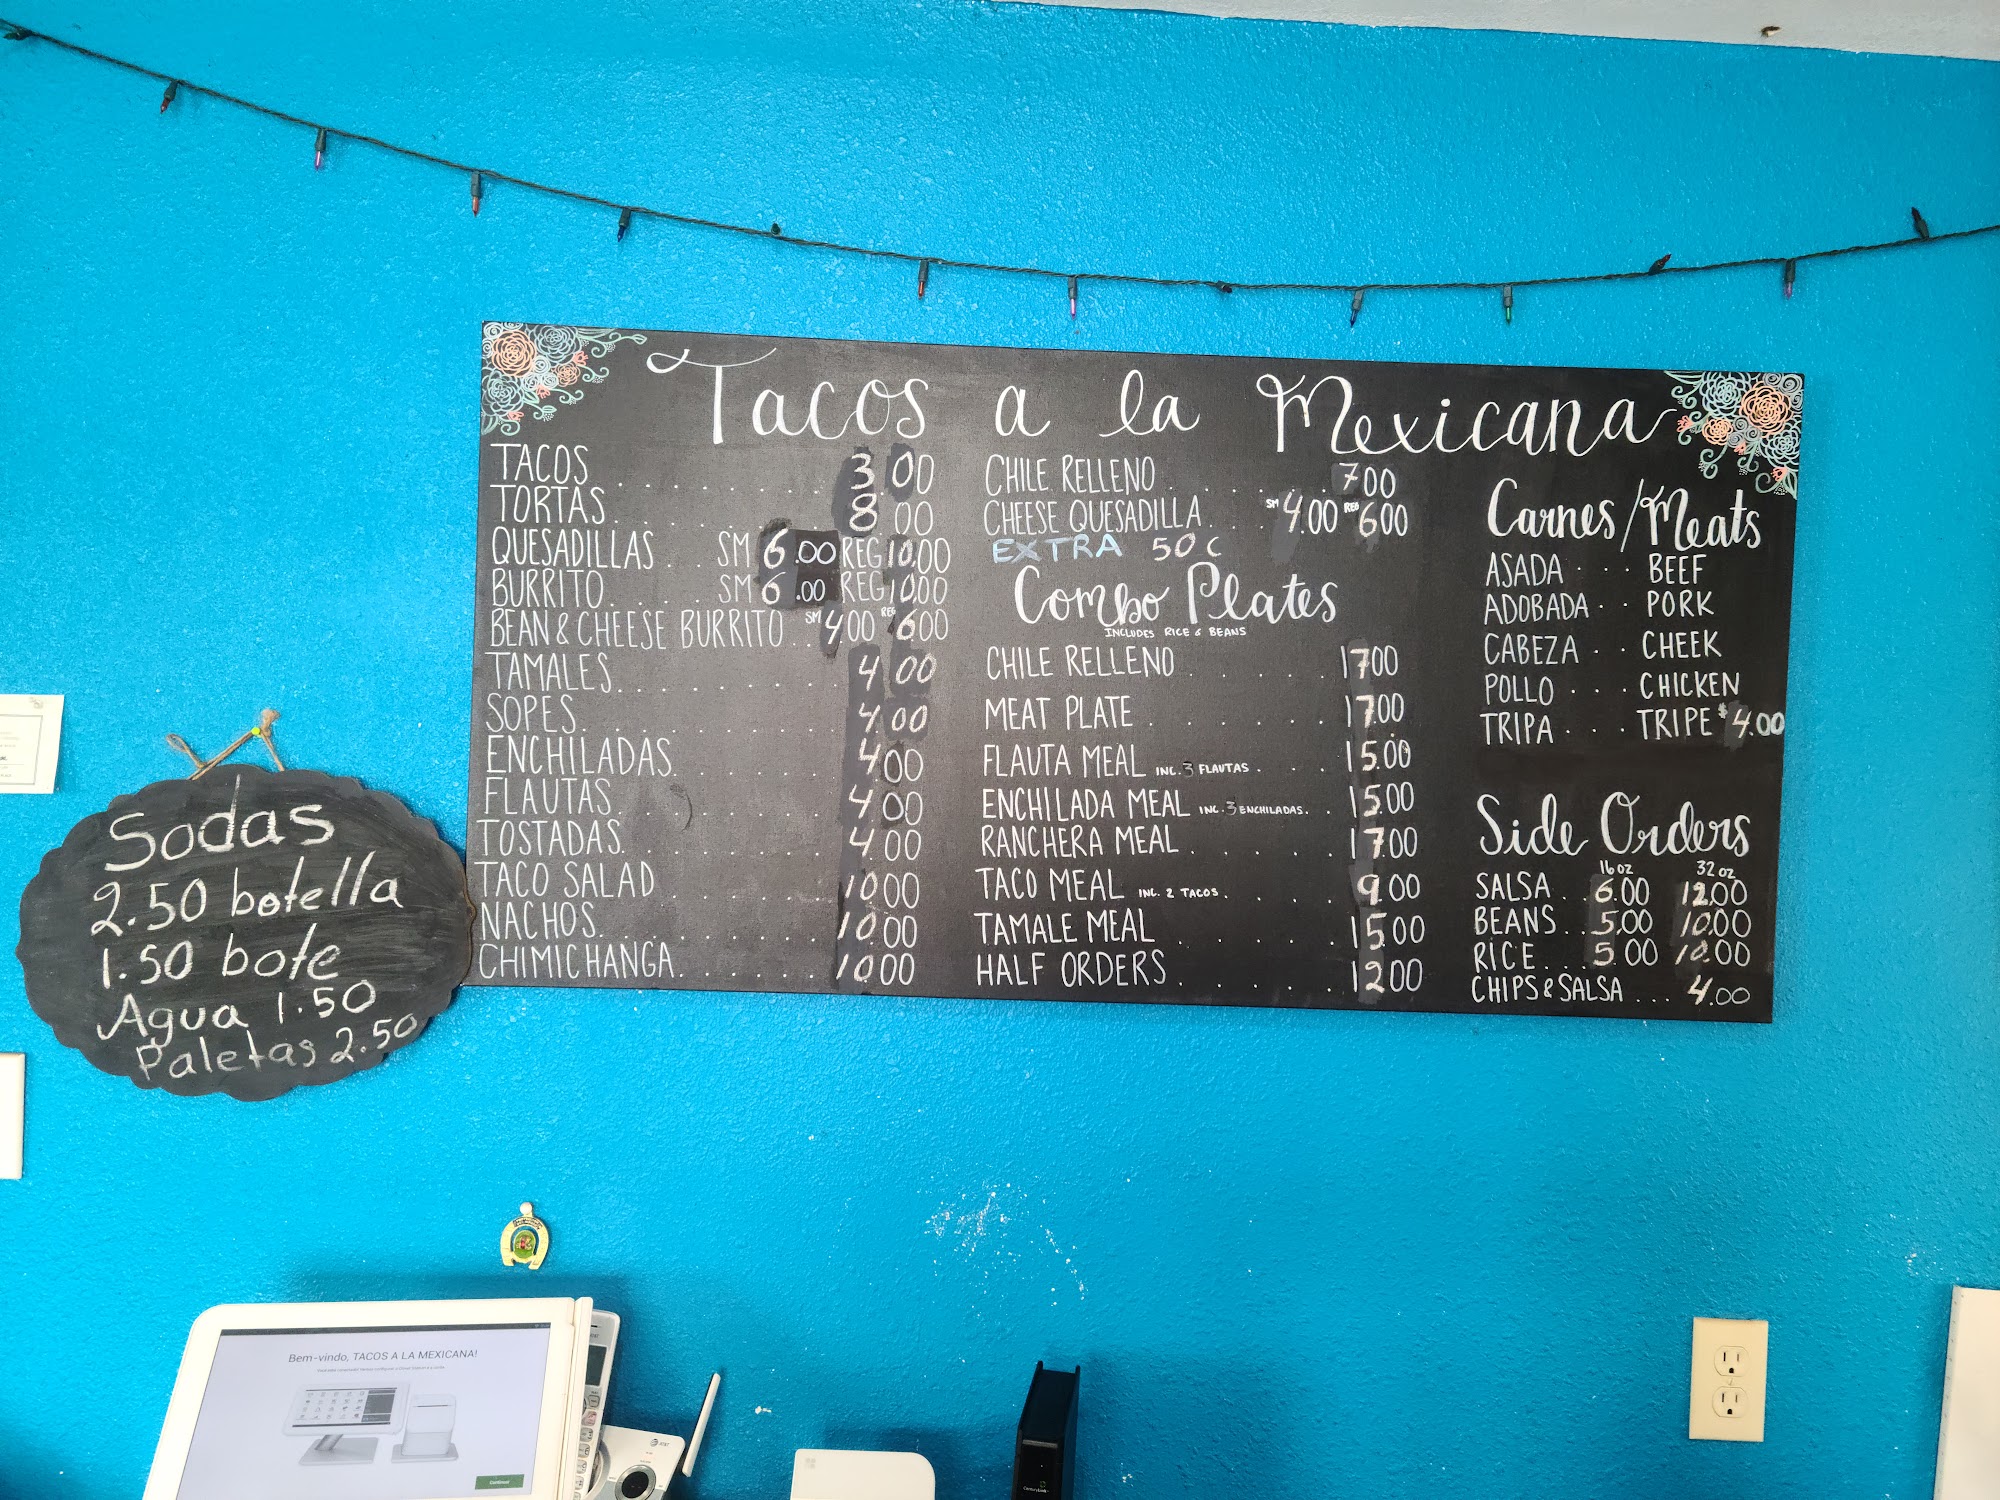 Tacos a la Mexicana
TACOS . . . . . . . . . 3.00
TORTAS . . . . . . . . 8.00
QUESADILLAS . . SM 6.00 REG 10.00
BURRITO . . . SM 6.00 REG 10.00
BEAN & CHEESE BURRITO . . SM 4.00 REG 6.00
TAMALES . . . . . . . . 4.00
SOPES . . . . . . . . . 4.00
ENCHILADAS . . . . . . 4.00
FLAUTAS . . . . . . . . 4.00
TOSTADAS . . . . . . . 4.00
TACO SALAD . . . . . . 10.00
NACHOS . . . . . . . . 10.00
CHIMICHANGA . . . . . . 10.00
CHILE RELLENO . . . . . 7.00
CHEESE QUESADILLA . . . SM 4.00 REG 6.00
EXTRA 50 C
Combo Plates
INCLUDES RICE & BEANS
CHILE RELLENO . . . . . 17.00
MEAT PLATE . . . . . . 17.00
FLAUTA MEAL INC. 3 FLAUTAS . . . . 15.00
ENCHILADA MEAL INC. 3 ENCHILADAS . . 15.00
RANCHERA MEAL . . . . . 17.00
TACO MEAL INC. 2 TACOS . . . . . 9.00
TAMALE MEAL . . . . . . 15.00
HALF ORDERS . . . . . . 12.00
Carnes/Meats
ASADA . . . BEEF
ADOBADA . . PORK
CABEZA . . CHEEK
POLLO . . . CHICKEN
TRIPA . . . TRIPE $4.00
Side Orders
16 oz 32 oz
SALSA . . 6.00 12.00
BEANS . . 5.00 10.00
RICE . . . 5.00 10.00
CHIPS & SALSA . . . 4.00
Sodas
2.50 botella
1.50 bote
Agua 1.50
Paletas 2.50
Bem-vindo, TACOS A LA MEXICANA!
Continuar
AT&T
CenturyLink